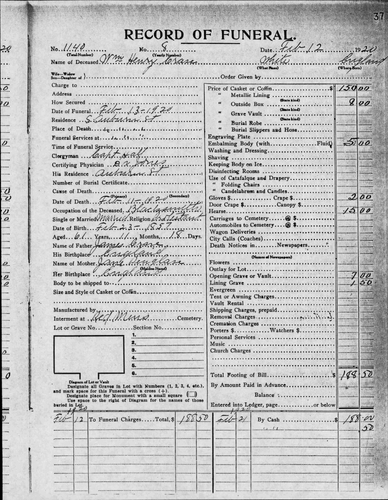 37
RECORD OF FUNERAL.
No. 1149 No. 8 Date Feb 12 1920
(Total Number) (Yearly Number)
Name of Deceased Wm Henry Crass White England
(What Race) (Where Born)
Order Given by
Charge to
Address
How Secured
Date of Funeral Feb 13-1920
Residence S. Auburn St
Place of Death
Funeral Services at
Time of Funeral Service
Clergyman Capt
Certifying Physician
His Residence Auburn St
Number of Burial Certificate
Cause of Death
Date of Death Feb 11-1920
Occupation of the Deceased Blacksmith
Single or Married Married Religion
Date of Birth Feb-23-185
Aged 61 Years 11 Months 18 Days
Name of Father James
His Birthplace England
Name of Mother Jane
Her Birthplace England
Body to be shipped
Size and Style of Casket or Coffin
Manufactured by
Interment at Cemetery.
Lot or Grave No. Section No.
1.
2.
3.
4.
5.
6.
7.
8.
Diagram of Lot or Vault
Designate all Graves in Lot with Numbers (1, 2, 3, 4, etc.), and mark space for this Funeral with a cross (+).
Designate place for Monument with a small square
Use the space to right of Diagram for the names of those buried in Lot.
Price of Casket or Coffin $ 150.00
" Metallic Lining
" Outside Box 8 00
" Grave Vault
" Burial Robe
" Burial Slippers and Hose
Engraving Plate
Embalming Body (with Fluid) 5 00
Washing and Dressing
Shaving
Keeping Body on Ice
Disinfecting Rooms
Use of Catafalque and Drapery
" Folding Chairs
" Candelabrum and Candles
Gloves $ Crape $ 2 00
Door Crape Canopy $
Hearse 15 00
Carriages to Cemetery @ $
Automobiles to Cemetery @ $
Wagon Deliveries
City Calls (Coaches)
Death Notices in Newspapers
Flowers
Outlay for Lot
Opening Grave or Vault 7 00
Lining Grave 1 50
Evergreen
Tent or Awning Charges
Vault Rental
Shipping Charges, prepaid
Removal Charges
Cremation Charges
Porters $ Watchers $
Personal Services
Music
Church Charges
Total Footing of Bill $ 188 50
By Amount Paid in Advance
Balance
Entered into Ledger, page or below.
1920 1920
Feb 12 To Funeral Charges, Total, $ 188 50 Feb 21 By Cash $ 188 00
50